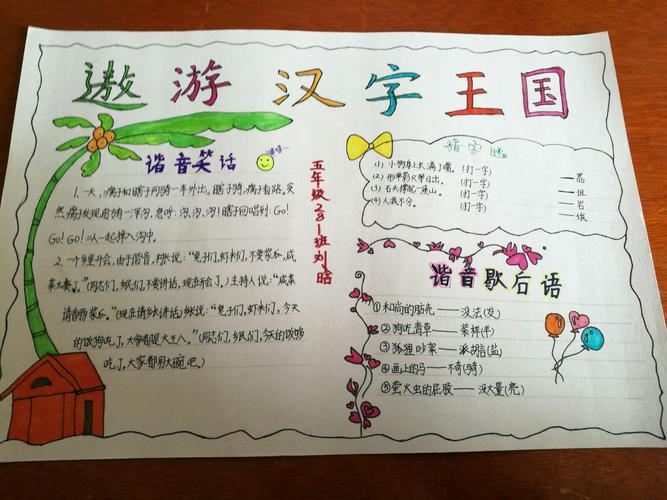 遨游汉字王国
谐音笑话
嘻嘻
1. 一天,瘸子和瞎子同骑一车外出,瞎子骑,瘸子看路,突
然,瘸子发现前有一深沟,急呼:沟,沟,沟!瞎子回唱到:Go!
Go!Go!二人一起掉入沟中。
2. 一个乡里开会,由于谐音,村长说:“兔子们,虾米们,不要菜瓜,咸
菜太贵了。”(同志们,乡民们,不要讲话,现在开会了。)主持人说:“咸菜
请香肠菜瓜。”(现在请乡长讲话)乡长说:“兔子们,虾米们,今天
的饭狗吃了,大家都是大王八。”(同志们,乡民们,今天的饭够
吃了,大家都用大碗吧。)
五年级281班刘晗
猜字谜
(1)小狗身上长满了嘴。(打一字) —品
(2)形单影只单日出。(打一字) —但
(3)石头撑起一座山。(打一字) —岩
(4)人我不分。(打一字) —俄
谐音歇后语
①和尚的脑壳——没法(发)
②狗吃青草——装样(羊)
③狐狸吵菜——派胡言(盐)
④画上的马——不奇(骑)
⑤萤火虫的屁股——没大量(亮)